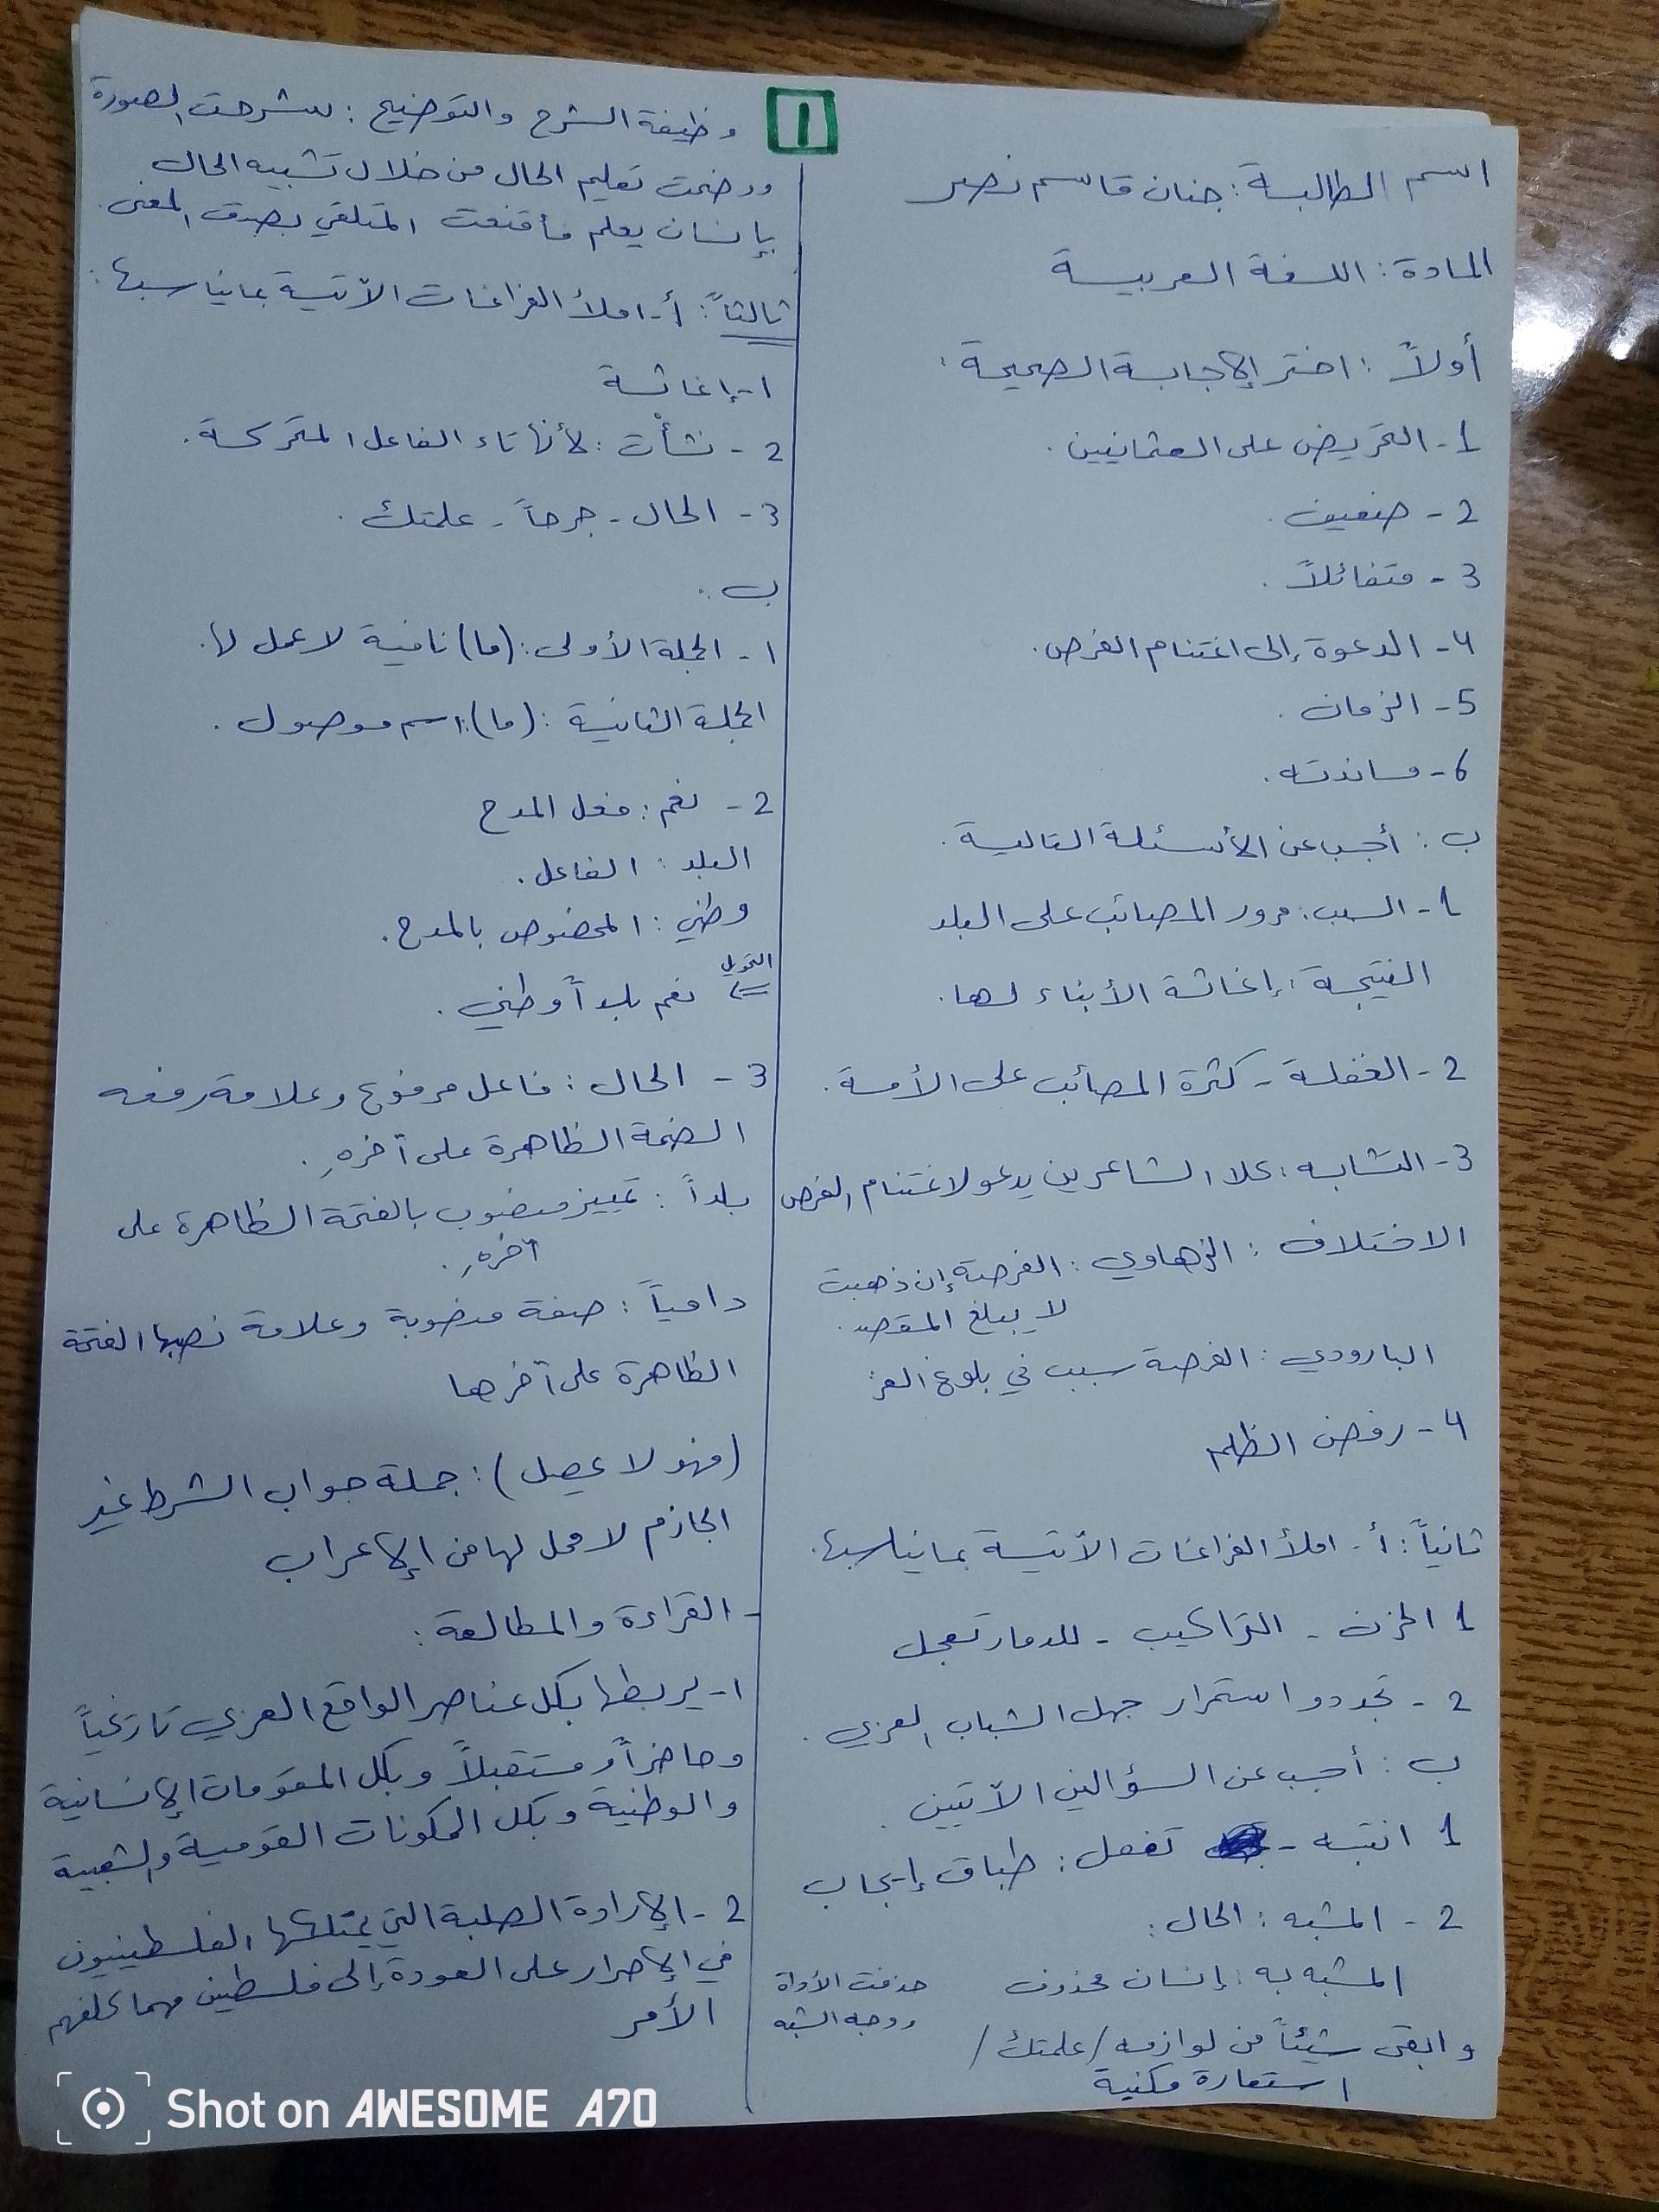 1
اسم الطالبة : جنان قاسم نصر
المادة : اللغة العربية
أولاً : اختر الإجابة الصحيحة :
1- التحريض على العثمانيين .
2- ضعيف .
3- متفائلاً .
4- الدعوة إلى اغتنام الفرص .
5- الزمان .
6- مساندته .
ب : أجب عن الأسئلة التالية .
1- السبب : مرور المصائب على البلد
النتيجة : إغاثة الأبناء لها .
2- الغفلة - كثرة المصائب على الأمة .
3- التشابه : كلا الشاعرين يدعو لاغتنام الفرص
الاختلاف : الزهاوي : الفرصة إن ذهبت
لا يبلغ المقصد .
البارودي : الفرصة سبب في بلوغ العز
4- رفض الظلم
ثانياً : أ- املأ الفراغات الآتية بما يناسبها .
1 الحزن - التراكيب - للدمار تعجل
2- تجدد و استمرار جهل الشباب العربي .
ب : أجب عن السؤالين الآتيين .
1 انتبه - تغفل : طباق إيجاب
2- المشبه : الحال :
المشبه به : إنسان محذوف
حذفت الأداة
ووجه الشبه
و ابقى شيئاً من لوازمه / علمتك /
استعارة مكنية
وظيفة الشرح والتوضيح : شرحت الصورة
ووضحت تعليم الحال من خلال تشبيه الحال
بإنسان يعلم فأقنعت المتلقي بصدق المعنى .
ثالثاً : أ- املأ الفراغات الآتية بما يناسبها :
1- إغاثة
2- نشأت : لأنها تاء الفاعل المتحركة .
3- الحال - جرحاً - علمتك .
ب :
1- الجملة الأولى : (ما) نافية لا عمل لها .
الجملة الثانية : (ما) : اسم موصول .
2- نعم : فعل المدح
البلد : الفاعل .
وطني : المخصوص بالمدح .
التحويل
⇐ نعم بلداً وطني .
3- الحال : فاعل مرفوع وعلامة رفعه
الضمة الظاهرة على آخرهِ .
بلداً : تمييز منصوب بالفتحة الظاهرة على
آخرهِ .
دامياً : صفة منصوبة وعلامة نصبها الفتحة
الظاهرة على آخرها
(فهو لا عجل) : جملة جواب الشرط غير
الجازم لا محل لها من الإعراب
- القراءة والمطالعة :
1- يربطها بكل عناصر الواقع العربي تاريخياً
وحاضراً ومستقبلاً وبكل المقومات الإنسانية
والوطنية وبكل المكونات القومية والشعبية
2- الإرادة الصلبة التي يمتلكها الفلسطينيون
في الإصرار على العودة إلى فلسطين مهما كلفهم
الأمر
Shot on AWESOME A70